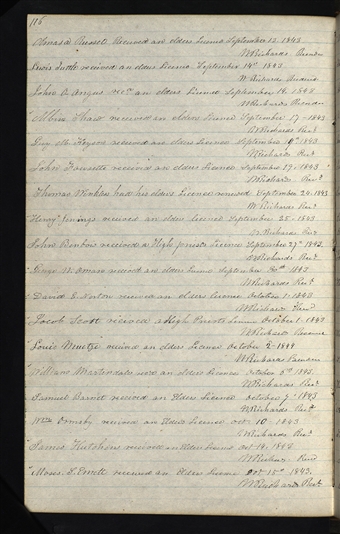 116
Amasa Russell Received an elders License September 12. 1843
W Richards Recorder
Lewis Tuttle received an elders License September 14th 1843
W. Richards
John O. Angus rec'd an elders License September 16. 1843
W Richards Recorder
Albin received an elders License September 17 - 1843
W Richards Rec'd
Guy received an elders License September 1843
W Richards Rec'd
John received an elders License September 19. 1843
W Richards Rec'd
Thomas had his elders License renewed September 20. 1843
W. Richards Rec'd
Henry Jennings received an elders License September 25. 1843
W Richards Rec'd
John Benbow received a High priests License September 27th 1843.
W Richards Rec'd
George W. received an elders License September 30th 1843
W Richards Rec'd
David E. received an elders license October 1. 1843
W Richards
Jacob Scott received a High Priests License October 1. 1843
W Richards Recorder
Louis received an elders License October 2. 1843
W Richards Recorder
William received an elders License October 5th 1843.
W Richards Rec'd
Samuel Barnet received an Elders License October 7. 1843
W Richards Rec'd
Wm Ormsby received an Elders License oct. 10. 1843
W Richards Rec'd
James Hutchins received an Elders License oct. 14. 1843
W Richards Rec'd
Moses received an Elders License Oct. 15th 1843.
W Richards Rec'd.